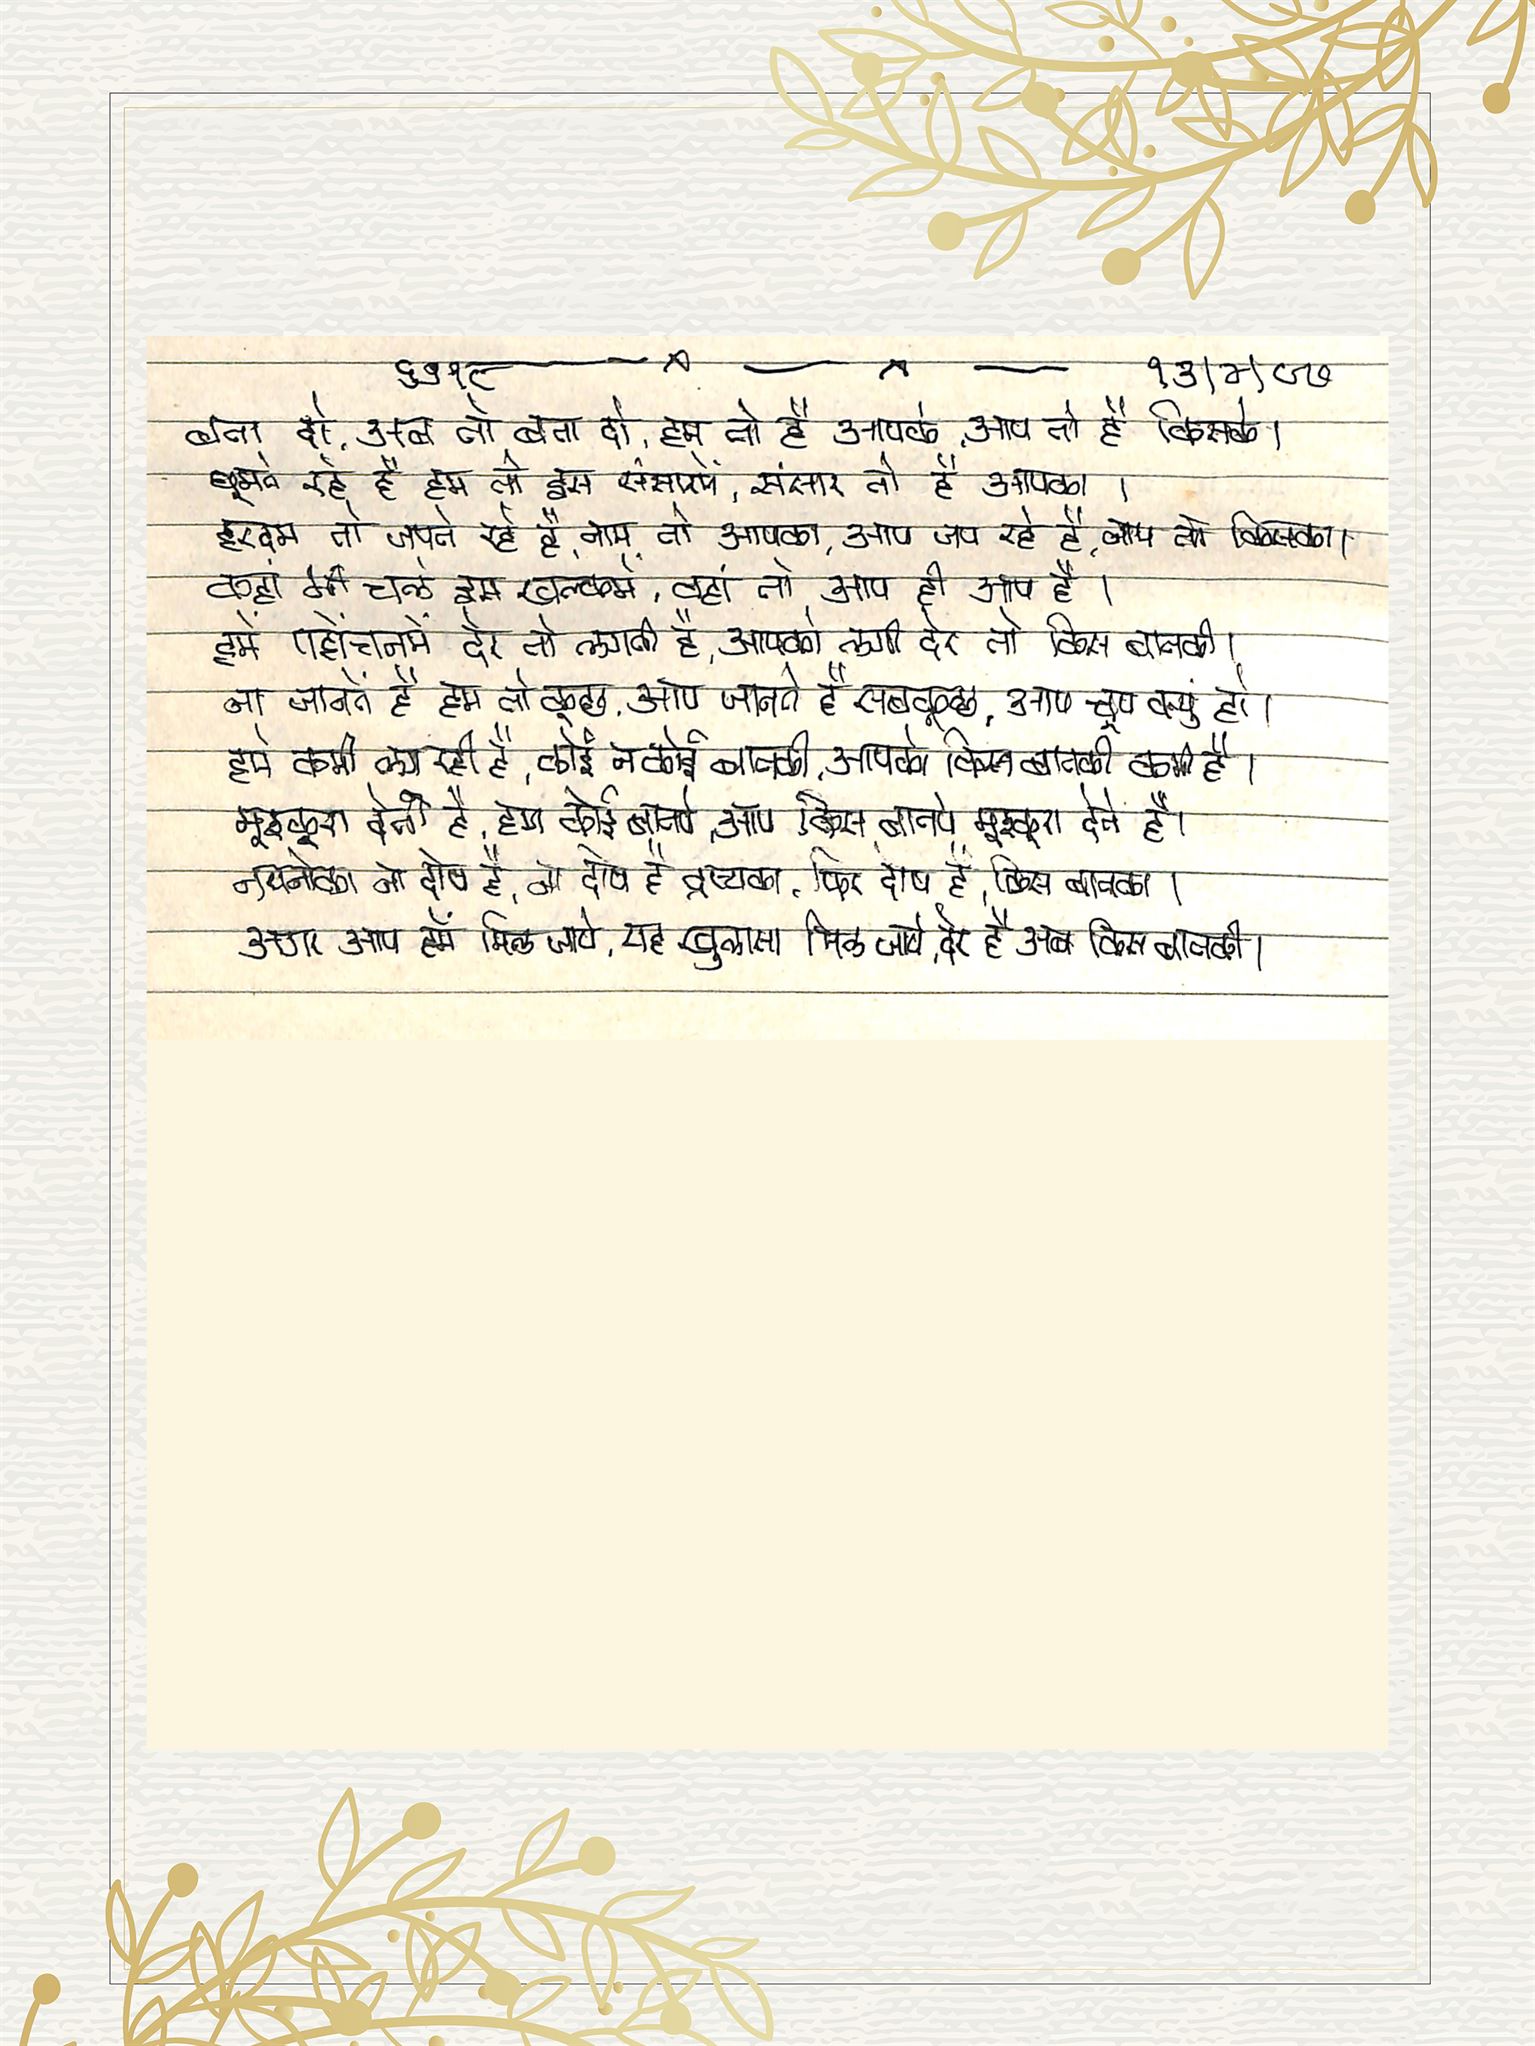 बता दो, अब तो बता दो, हम तो है आपके, आप तो है किसके।
घूमते रहे है हम तो इस संसारमें, संसार तो है आपका ।
हरदम तो जपते रहे है, नाम तो आपका, आप जप रहे है, जाप तो किसका।
कहां भी चले हम खल्कमें, वहां तो आप ही आप है ।
हमें पहोंचनमें देर तो लगती है, आपको लगी देर तो किस बातकी।
ना जानतें है हम तो कूछ, आप जानते है सबकूछ, आप चूप क्युं हो।
हमे कमी लग रही है, कोई न कोई बातकी, आपको किस बातकी कमी है ।
मूश्कूरा देते है, हम कोई बातपे, आप किस बातपे मूश्कूरा देते है।
नयनोका ना दोष है, ना दोष है द्रश्यका, फिर दोष है, किस बातका ।
अगर आप हमें मिल जाये, यह खुलासा मिल जाये, देर है अब किस बातकी।